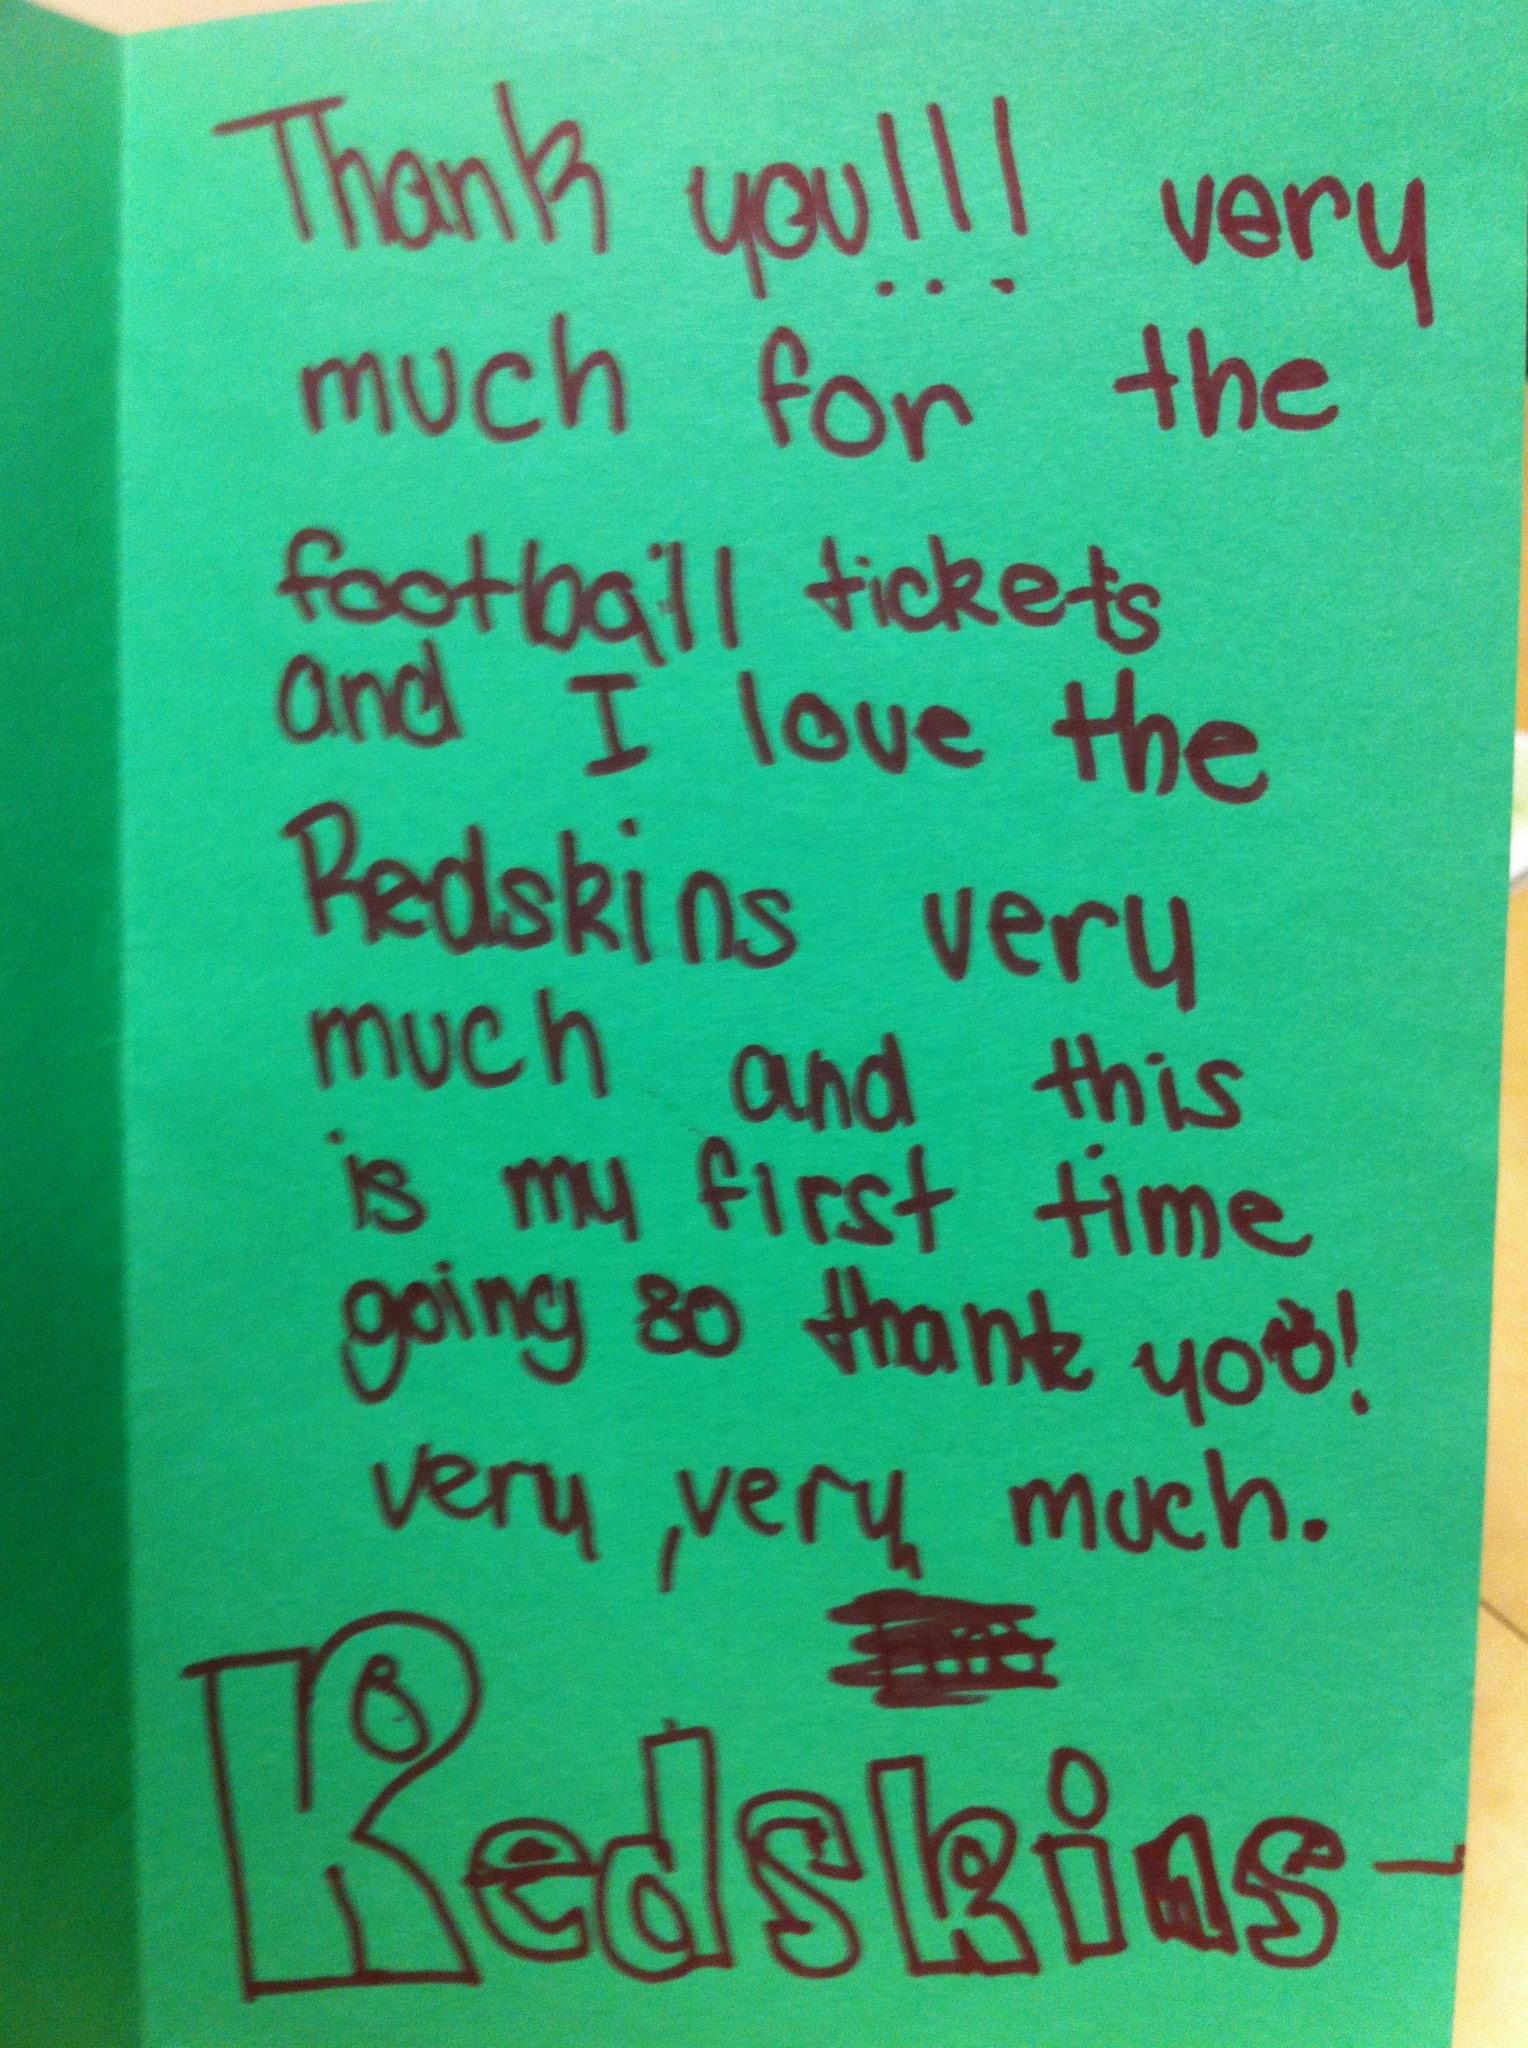 Thank you!!! very
much for the
football tickets
and I love the
Redskins very
much and this
is my first time
going so thank you!
very, very, much.
Redskins